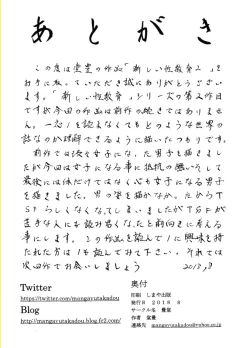 あとがき
この度は堂豊の作品「新しい性教育2」を
お手に取っていただき誠にありがとうござい
ます。「新しい性教育」シリーズの第2作目
ですが今回の作品は前作の続きではありませ
ん。一応1を読まなくてもどのような世界の
話なのか理解できるように描いたつもりです。
前作では後々女子になった男子を描きまし
たが今回は女子になる事に抵抗の無いそして
最後には体だけではなく心も女子になる男子
を描きました。男の娘を描かなかったからTS
らしくなくなってしまいましたがTSFが
苦手な人にも読み易くなったと前向きに考える
事にします。この作品を読んで1に興味を持
たれた方は1も読んでみて下さい。それでは
次回作でお会いしましょう 2018,8
Twitter
https://twitter.com/mangayutakadou
Blog
http://mangayutakadou.blog.fc2.com/
奥付
印刷 しまや出版
発行日 2018 8
サークル名 豊堂
作者 堂豊
連絡先 mangayutakadou@yahoo.co.jp